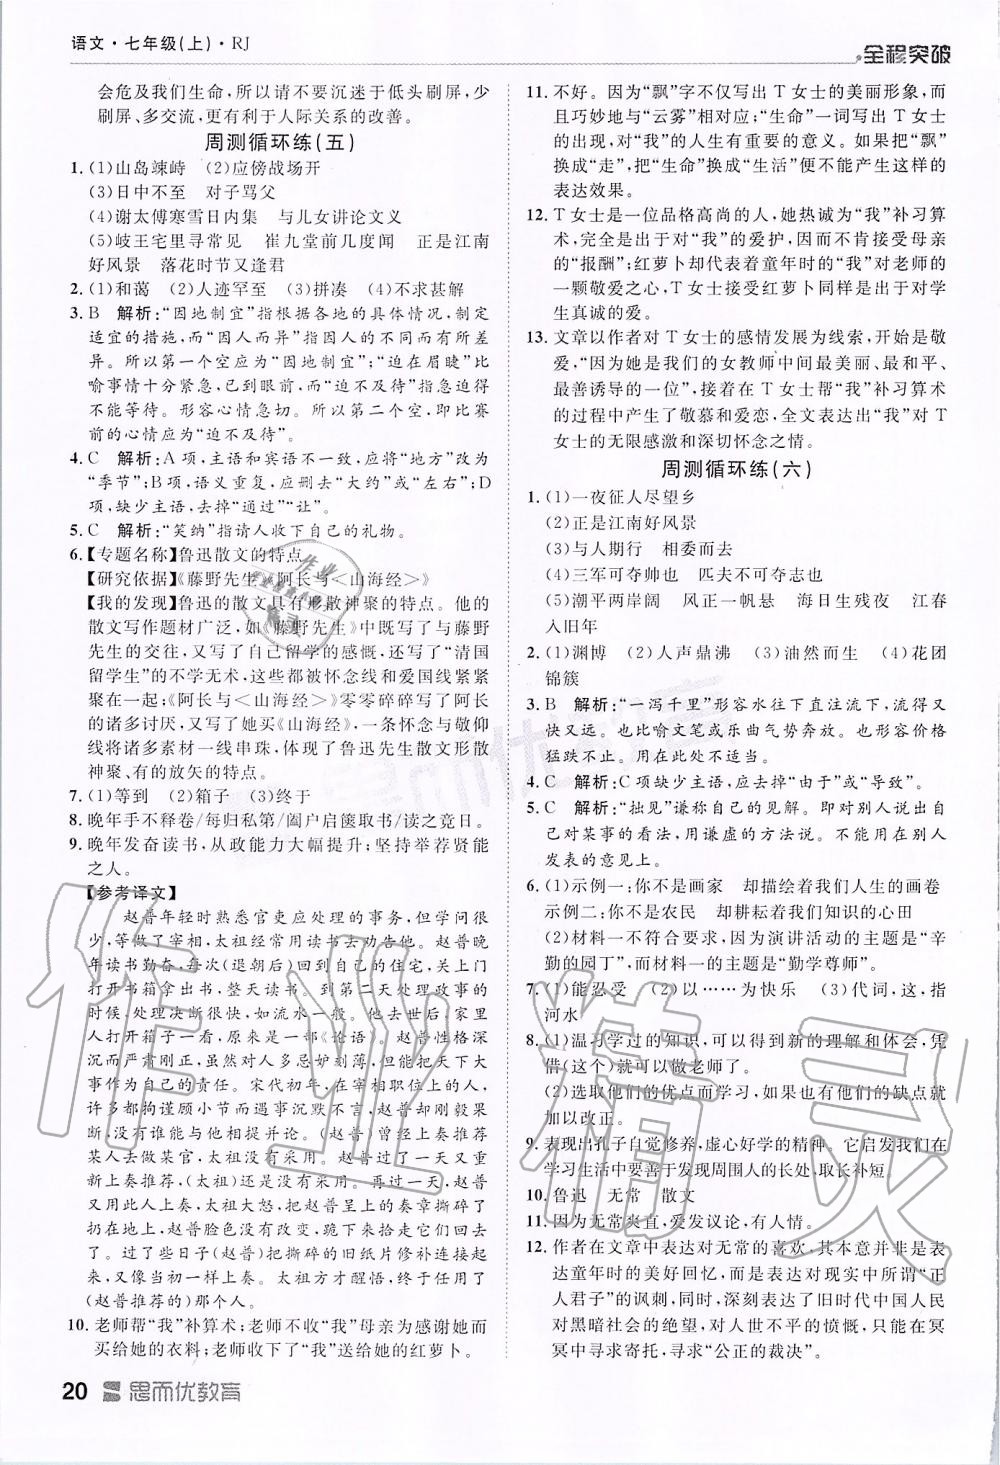 语文·七年级(上)·RJ
全程突破
会危及我们生命,所以请不要沉迷于低头刷屏,少
刷屏、多交流,更有利于人际关系的改善。
周测循环练(五)
1.(1)山岛竦峙 (2)应傍战场开
(3)日中不至 对子骂父
(4)谢太傅寒雪日内集 与儿女讲论文义
(5)岐王宅里寻常见 崔九堂前几度闻 正是江南
好风景 落花时节又逢君
2.(1)和蔼 (2)人迹罕至 (3)拼凑 (4)不求甚解
3.B 解析:“因地制宜”指根据各地的具体情况,制定
适宜的措施,而“因人而异”指因人的不同而有所差
异。所以第一个空应为“因地制宜”;“迫在眉睫”比
喻事情十分紧急,已到眼前,而“迫不及待”指急迫得
不能等待。形容心情急切。所以第二个空,即比赛
前的心情应为“迫不及待”。
4.C 解析:A项,主语和宾语不一致,应将“地方”改为
“季节”;B项,语义重复,应删去“大约”或“左右”;D
项,缺少主语,去掉“通过”“让”。
5.C 解析:“笑纳”指请人收下自己的礼物。
6.【专题名称】鲁迅散文的特点
【研究依据】《藤野先生》《阿长与<山海经>》
【我的发现】鲁迅的散文具有形散神聚的特点。他的
散文写作题材广泛,如《藤野先生》中既写了与藤野
先生的交往,又写了自己留学的感慨,还写了“清国
留学生”的不学无术,这些都被怀念线和爱国线紧紧
聚在一起;《阿长与<山海经>》零零碎碎写了阿长
的诸多讨厌,又写了她买《山海经》,一条怀念与敬仰
线将诸多素材一线串珠,体现了鲁迅先生散文形散
神聚、有的放矢的特点。
7.(1)等到 (2)箱子 (3)终于
8.晚年手不释卷/每归私第/阖户启箧取书/读之竟日。
9.晚年发奋读书,从政能力大幅提升;坚持举荐贤能
之人。
【参考译文】
赵普年轻时熟悉官吏应处理的事务,但学问很
少,等做了宰相,太祖经常用读书去劝告他。赵普晚
年读书勤奋,每次(退朝后)回到自己的住宅,关上门
打开书箱拿出书,整天读书。到第二天处理政事的
时候,处理决断很快,如流水一般。他去世后,家人
打开箱子一看,原来是一部《论语》。赵普性格深
沉而严肃刚正,虽然对人多忌妒刻薄,但能把天下大
事作为自己的责任。宋代初年,在宰相职位上的人,
许多都拘谨顾小节而遇事沉默不言,(但赵普)刚毅果
断,没有谁能与他相提并论。(赵普)曾经上奏推荐
某人去做某官,太祖没有采用。过了一天又重
新上奏推荐,(太祖)还是没有采用。再过一天,又
上奏推荐,太祖大怒,把赵普呈上的奏章撕碎了
扔在地上,赵普脸色没有改变,跪下来捡起它们回去
了。以后(赵普)把撕碎的旧纸片修补连接到一
起,像当初一样上奏。太祖方才醒悟,终于任用了
(赵普推荐的)那个人。
10.老师帮“我”补算术;老师不收“我”母亲为感谢她而
买给她的衣料;老师收下了“我”送给她的红萝卜。
11.不好。因为“飘”字不仅写出T女士的美丽形象,而
且巧妙地与“云雾”相对应;“生命”一词写出T女士
的出现,对“我”的人生有重要的意义。如果把“飘”
换成“走”,把“生命”换成“生活”便不能产生这样的
表达效果。
12.T女士是一位品格高尚的人,她热诚为“我”补习算
术,完全是出于对“我”的爱护,因而不肯接受母亲
的“报酬”;红萝卜却代表着童年时的“我”对老师的
一颗敬爱之心,T女士接受红萝卜同样是出于对学
生真诚的爱。
13.文章以作者对T女士的感情发展为线索,开始是敬
爱,“因为她是我们的女教师中间最美丽、最和平、
最善诱导的一位”,接着在T女士帮“我”补习算术
的过程中产生了敬慕和爱恋,全文表达出“我”对T
女士的无限感激和深切怀念之情。
周测循环练(六)
1.(1)一夜征人尽望乡
(2)正是江南好风景
(3)与人期行 相委而去
(4)三军可夺帅也 匹夫不可夺志也
(5)潮平两岸阔 风正一帆悬 海日生残夜 江春
入旧年
2.(1)渊博 (2)人声鼎沸 (3)油然而生 (4)花团
锦簇
3.B 解析:“一泻千里”形容水往下直注流下,流得又
快又远。也比喻文笔或乐曲气势奔放。也形容价格
猛跌不止。用在此处不适当。
4.C 解析:C项缺少主语,应去掉“由于”或“导致”。
5.C 解析:“拙见”谦称自己的见解。即对别人说出自
己对某事的看法,用谦虚的方法说。不能用在别人
发表的意见上。
6.(1)示例一:你不是画家 却描绘着我们人生的画卷
示例二:你不是农民 却耕耘着我们知识的心田
(2)材料一不符合要求,因为演讲活动的主题是“辛
勤的园丁”,而材料一的主题是“勤学尊师”。
7.(1)能忍受 (2)以……为快乐 (3)代词,这,指
河水
8.(1)温习学过的知识,可以得到新的理解和体会,凭
借(这个)就可以做老师了。
(2)选取他们的优点而学习,如果也有他们的缺点就
加以改正。
9.表现出孔子自觉修养,虚心好学的精神。它启发我们在
学习生活中要善于发现周围人的长处,取长补短。
10.鲁迅 无常 散文
11.因为无常爽直,爱发议论,有人情。
12.作者在文章中表达对无常的喜欢,其本意并非是表
达童年时的美好回忆,而是表达对现实中所谓“正
人君子”的讽刺,同时,深刻表达了旧时代中国人民
对黑暗社会的绝望,对人世不平的愤慨,只有在冥
冥中寻求寄托,寻求“公正的裁决”。
20
思而优教育
作业精灵